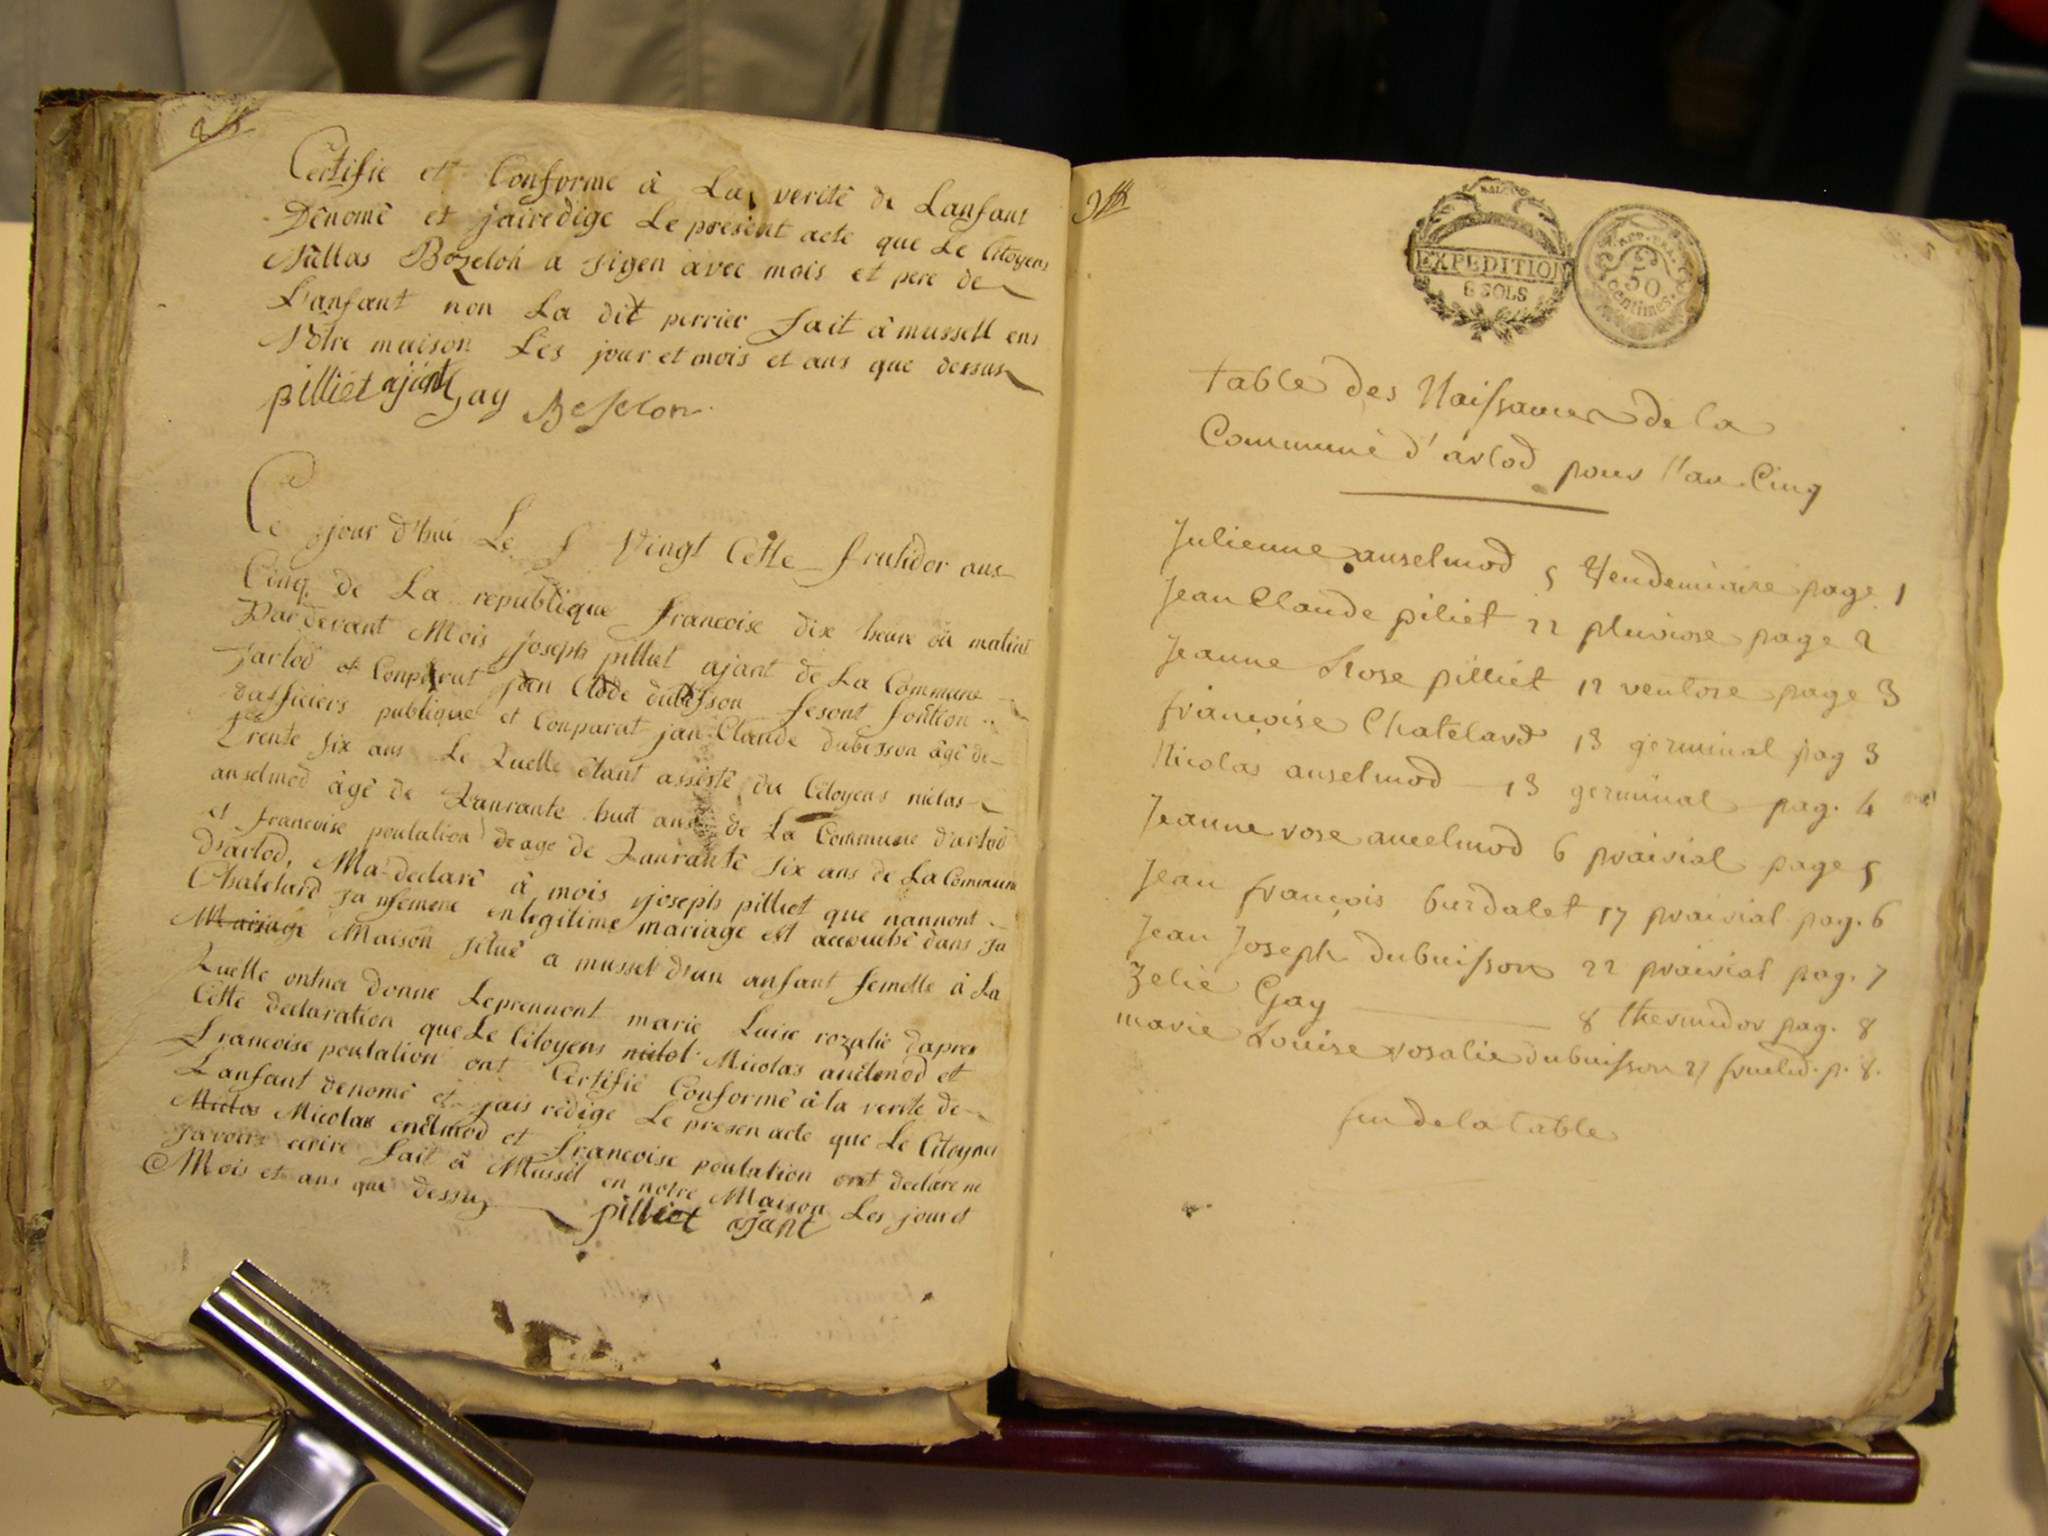 Certifie et Conforme à La verité de Lanfant
Dénomé et jairedige Le present acte que Le Citoyens
Nicllas Bozelon a signen avec mois et pere de
Lanfant non La dit perrier fait à mussell ens
Nôtre maison Les jour et mois et ans que dessus
pilliet ajant Gay Beselon
Ce jour d'hui Le Vingt Cette frutidor ans
Cinq de La republique francoise dix heure du matins
Pardevant Mois joseph pilliet ajant de La Commune
Darlod et Conparut jan Clode dubisson fesont fontion
dufficiers publique et Conparut jan Claude dubisson âgé de
trente six ans Le Quelle étant assisté du Citoyens niclas
anselmod âgé de Qaurante huit ans de La Commune d'arlod
et francoise poulation de age de Qaurante six ans de La Commune
D'arlod, Ma declaré à mois joseph pilliet que nannont
Chatelard sa femene en legitime mariage est accouché dans sa
Mariage Maison situé a mussel d'un anfant femelle à La
Quelle ontner donne Leprennont marie Luise rozalie daprer
Cette declaration que Le Citoyens niclol Nicolas ancelmod et
francoise poulation ont Certifié Conformé à la verite de
Lanfant denomé et jais rédigé Le presen acte que Le Citoynes
Niclas Nicolas encelmod et francoise poulation ont declare ne
savoire ecrire fait à Mussel en notre Maison Les jour et
Mois et ans que dessuz
pilliet ajant
EXPEDITION
6 SOLS
50
Centimes.
table des Naissances de la
Commune d'arlod pour l'an Cinq
Julienne anselmod 5 Vendemiaire page 1
Jean Claude piliet 22 pluviose page 2
Jeanne Rose pilliet 12 ventose page 3
françoise Chatelard 13 germinal pag 3
Nicolas anselmod 13 germinal pag. 4
Jeanne rose ancelmod 6 prairial page 5
Jean françois burdalet 17 prairial pag. 6
Jean Joseph dubuisson 22 prairial pag. 7
Zelie Gay 8 thermidor pag. 8
marie Louise rosalie dubuisson 27 fructid. p. 8.
fin de la table